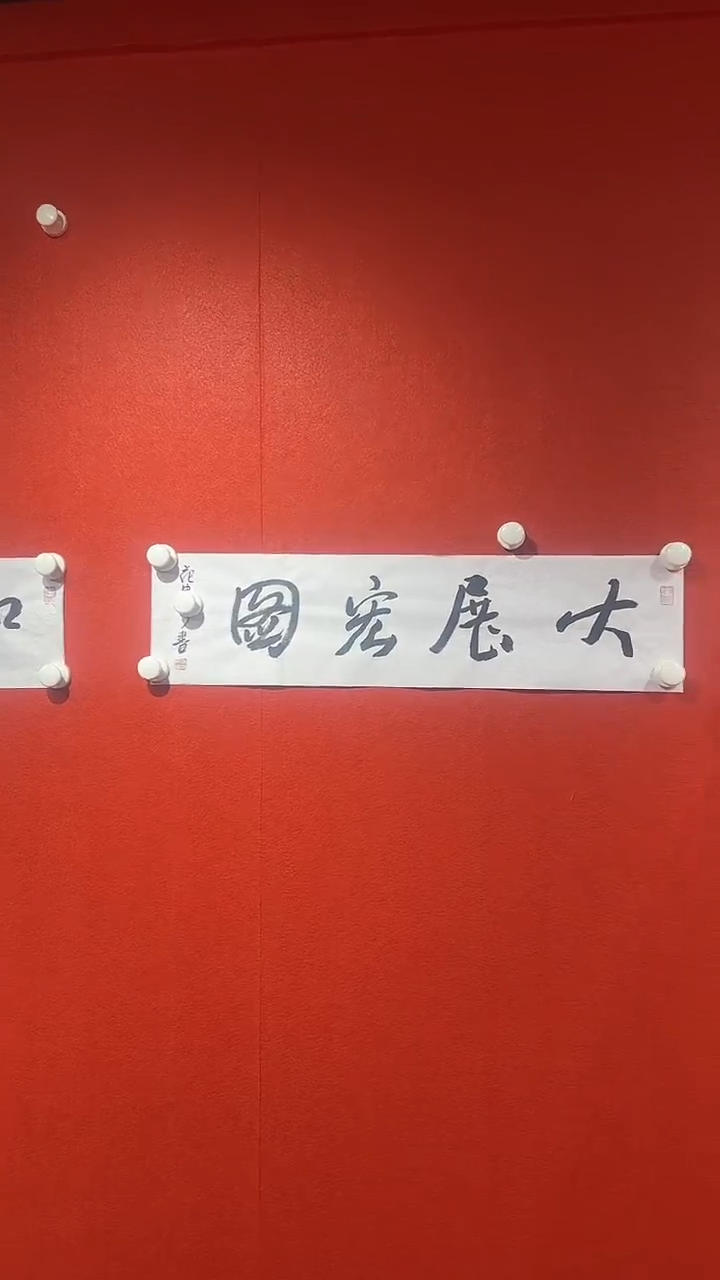 大展宏圖
書